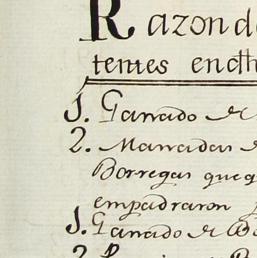 Razon de
tentes en dh
1. Ganado de
2. Manadas d
Borregas que q
empadraron
1. Ganado de
2.